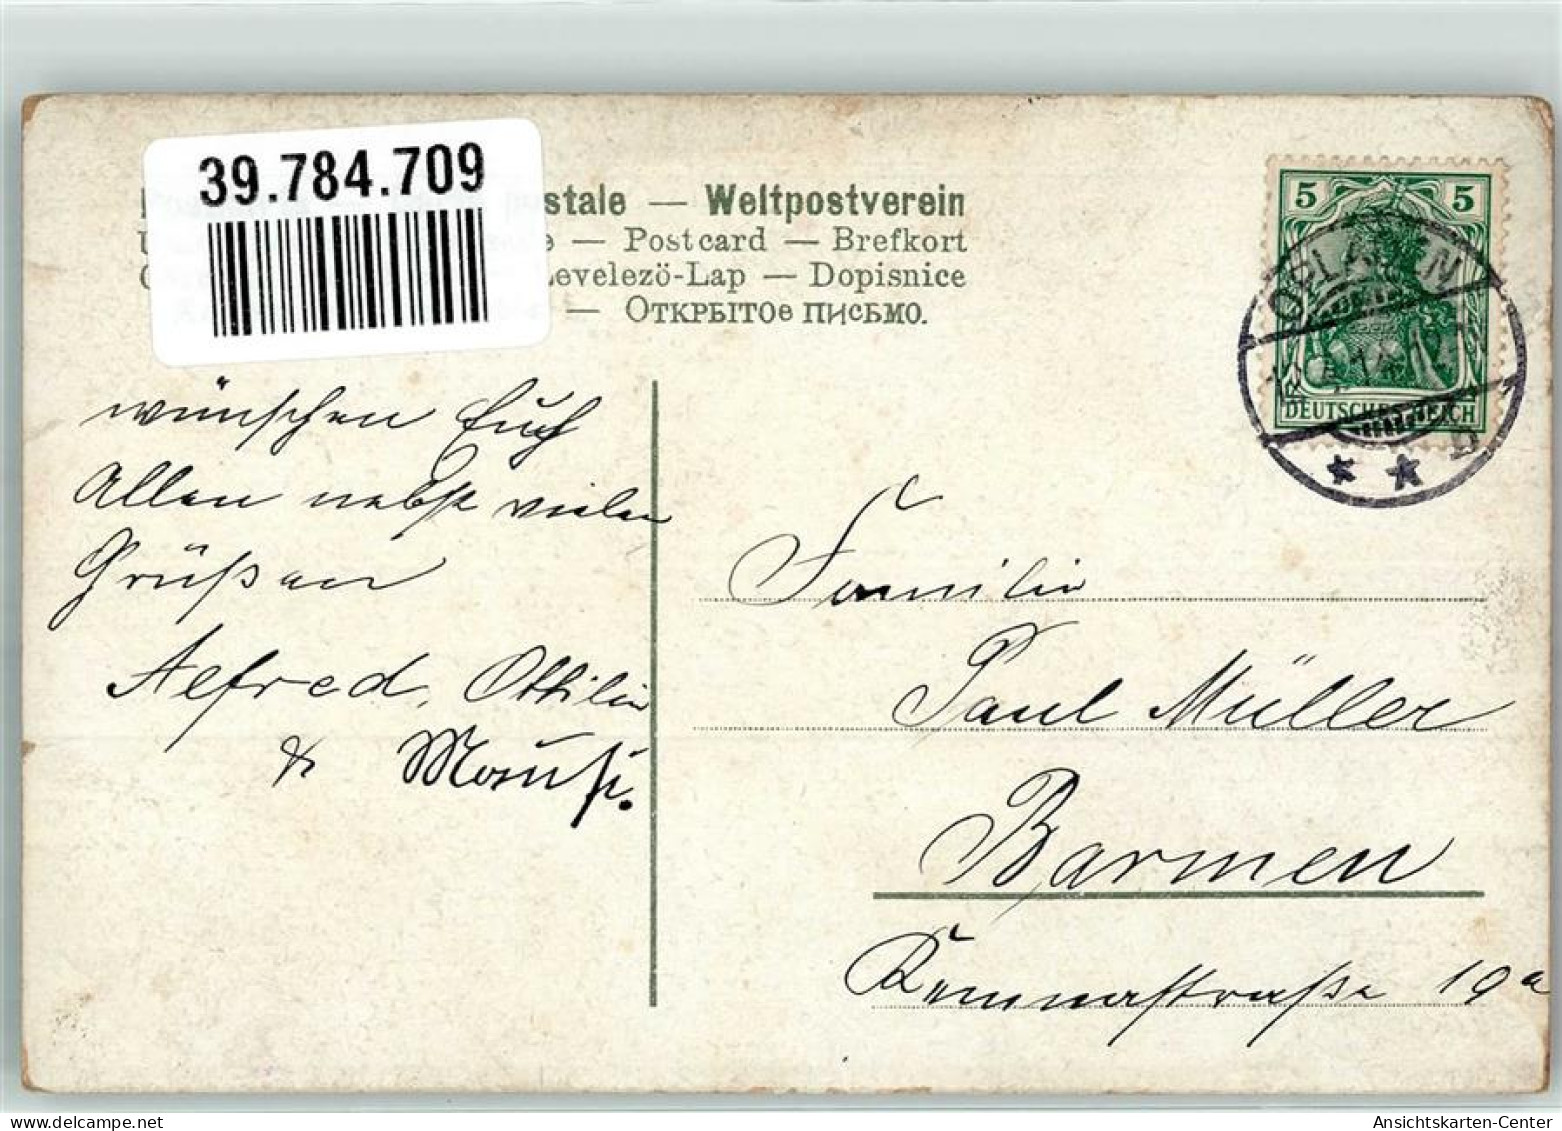 39.784.709
stale — Weltpostverein
— Postcard — Brefkort
Levelezö-Lap — Dopisnice
— Открытое письмо.
5 5
DEUTSCHES REICH
b
wünschen Euch
Allen nebst vielen
Grüßen
Alfred, Ottilie
& Mausi.
Familie
Paul Müller
Barmen
19a
Ansichtskarten-Center